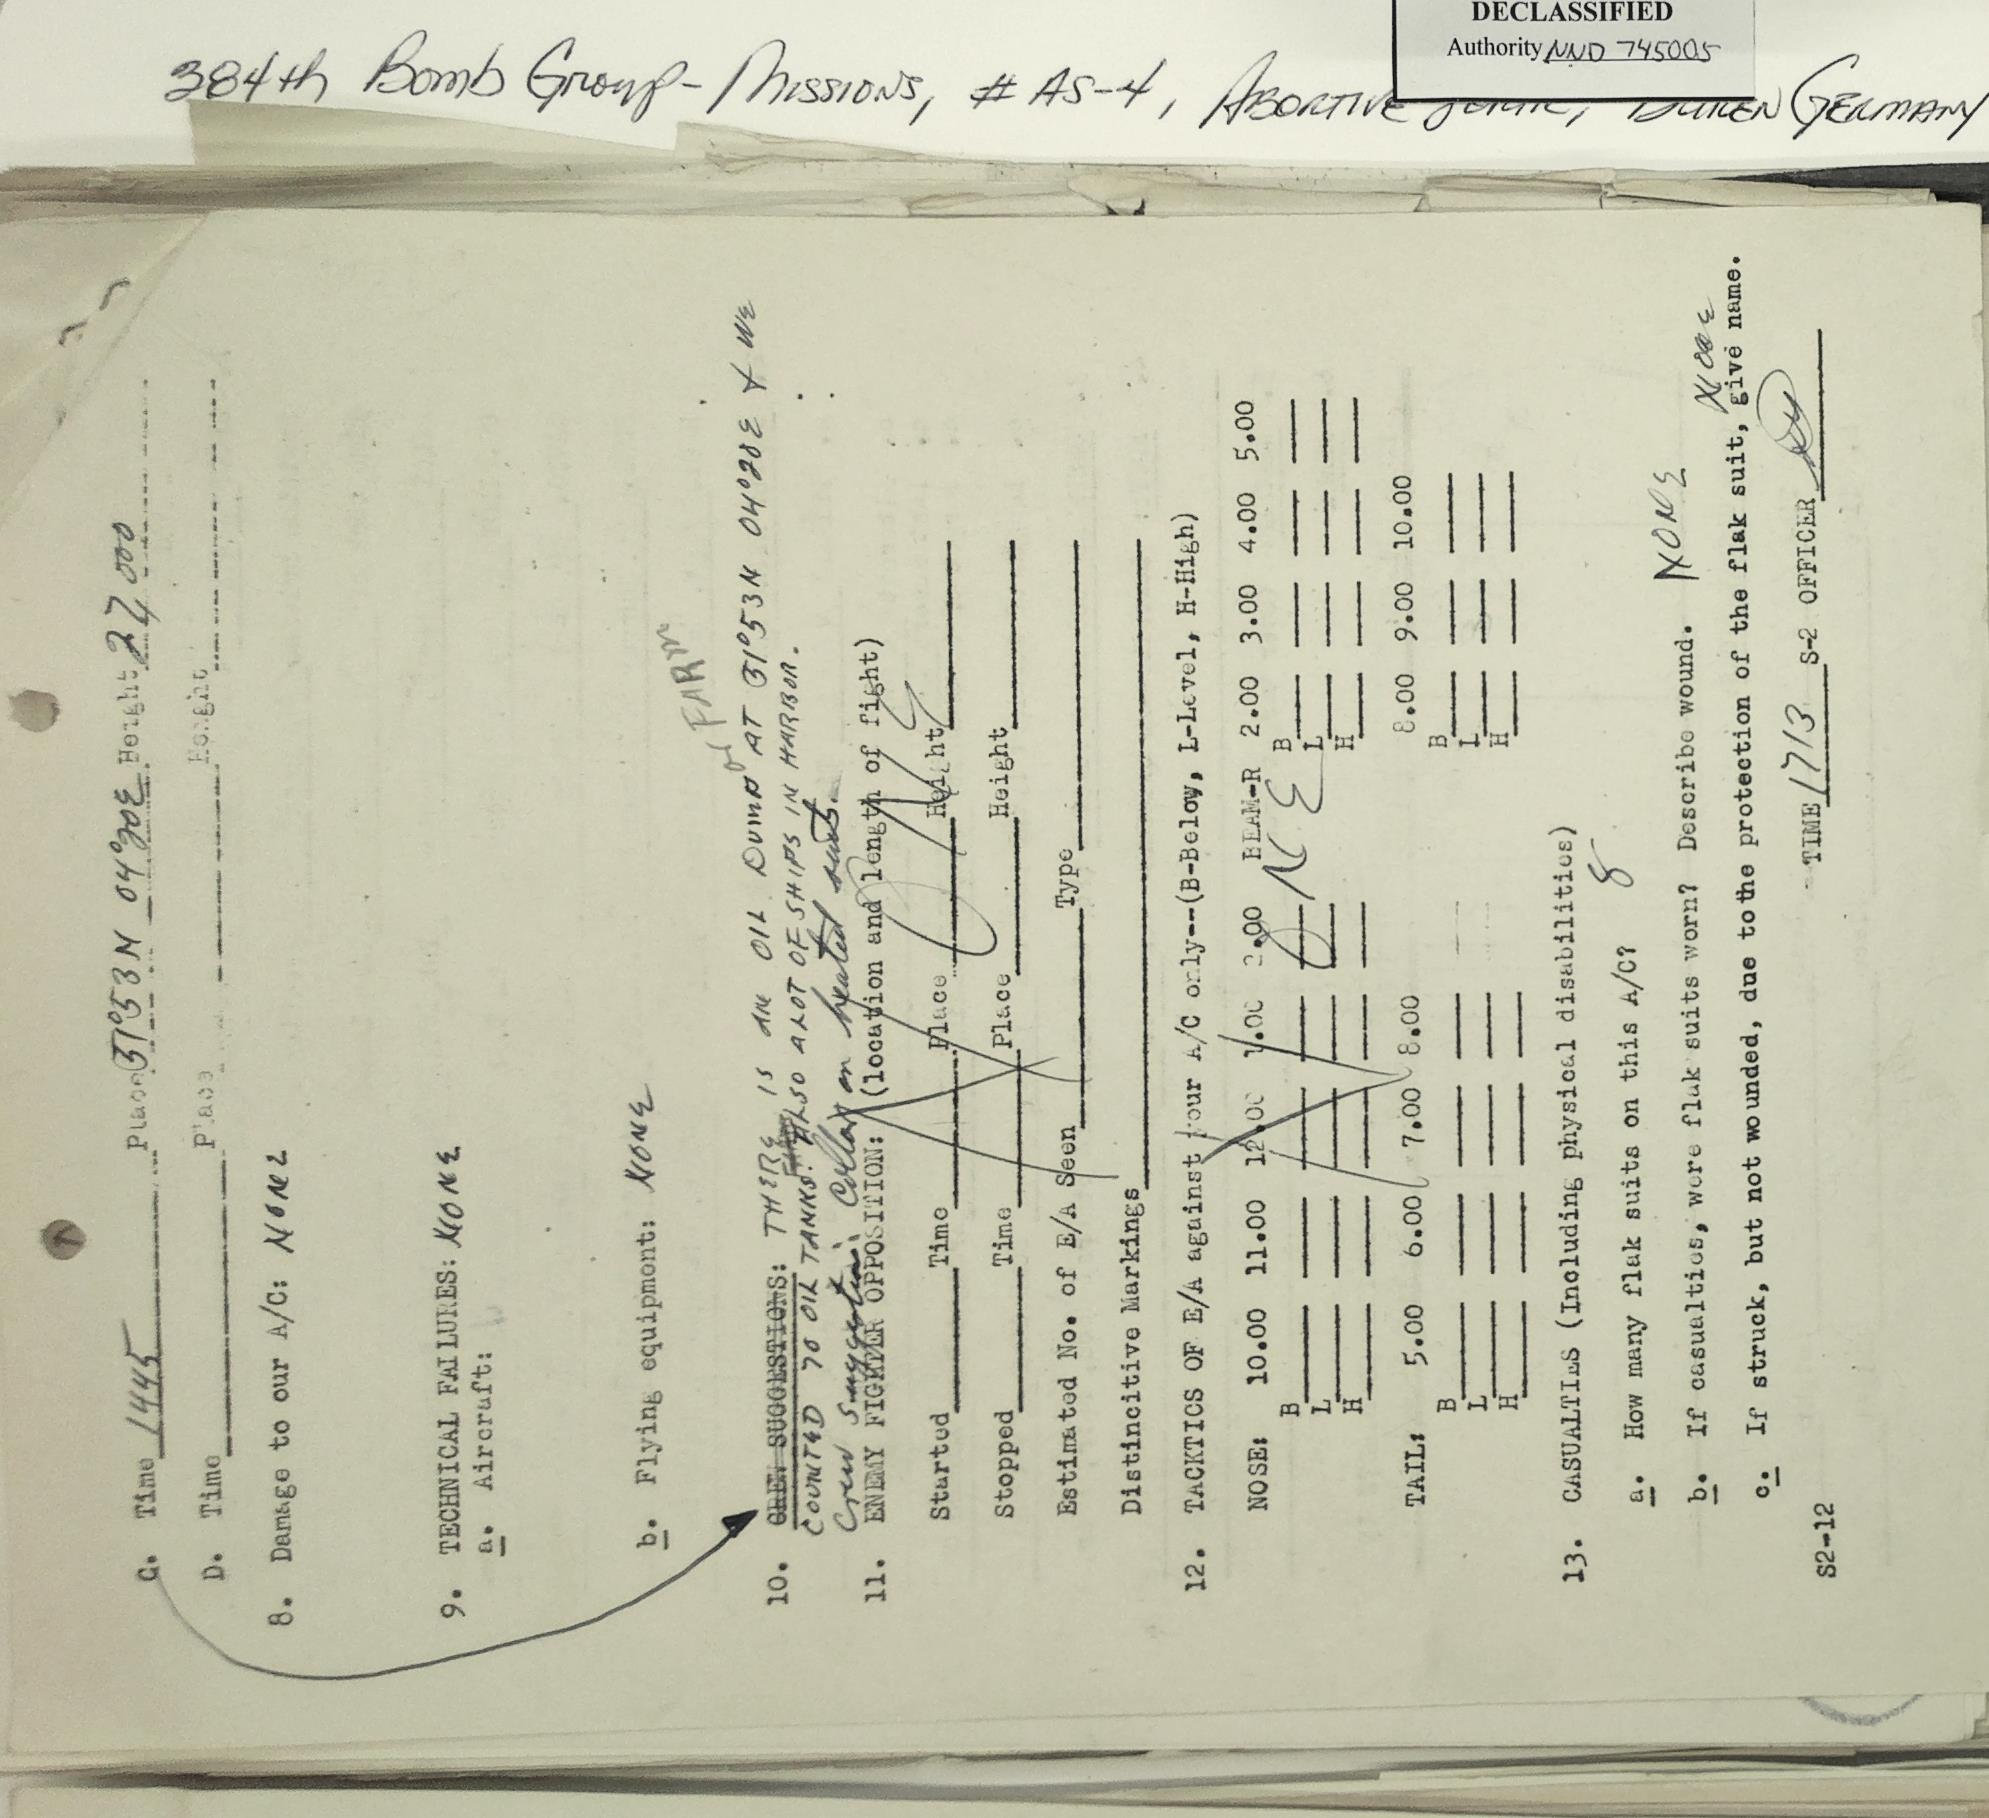 DECLASSIFIED
Authority NND 745005
384th Bomb Group - Missions, # AS-4, Abortive Duren Germany
C. Time 1445 Place 51°53N 04°20E Height 27,000
D. Time Place Height
8. Damage to our A/C: NONE
9. TECHNICAL FAILURES: NONE
a. Aircraft:
b. Flying equipment: NONE
or FARM
10. CREW SUGGESTIONS: THERE IS AN OIL DUMP AT 51°53N 04°28E & WE
COUNTED 70 OIL TANKS. ALSO A LOT OF SHIPS IN HARBOR.
Crew Suggestion: Collar on heated suit.
11. ENEMY FIGHTER OPPOSITION: (location and length of fight)
Started Time Place Height
Stopped Time Place Height
Estimated No. of E/A Seen Type
Distincitive Markings
12. TACKTICS OF E/A against your A/C only--(B-Below, L-Level, H-High)
NOSE: 10.00 11.00 12.00 1.00 2.00 BEAM-R 2.00 3.00 4.00 5.00
B B
L L
H H
TAIL: 5.00 6.00 7.00 8.00 8.00 9.00 10.00
B B
L L
H H
13. CASUALTIES (Including physical disabilities)
a. How many flak suits on this A/C? 8
b. If casualties, were flak suits worn? Describe wound. NONE
c. If struck, but not wounded, due to the protection of the flak suit, give name. NONE
TIME 1713 S-2 OFFICER
S2-12